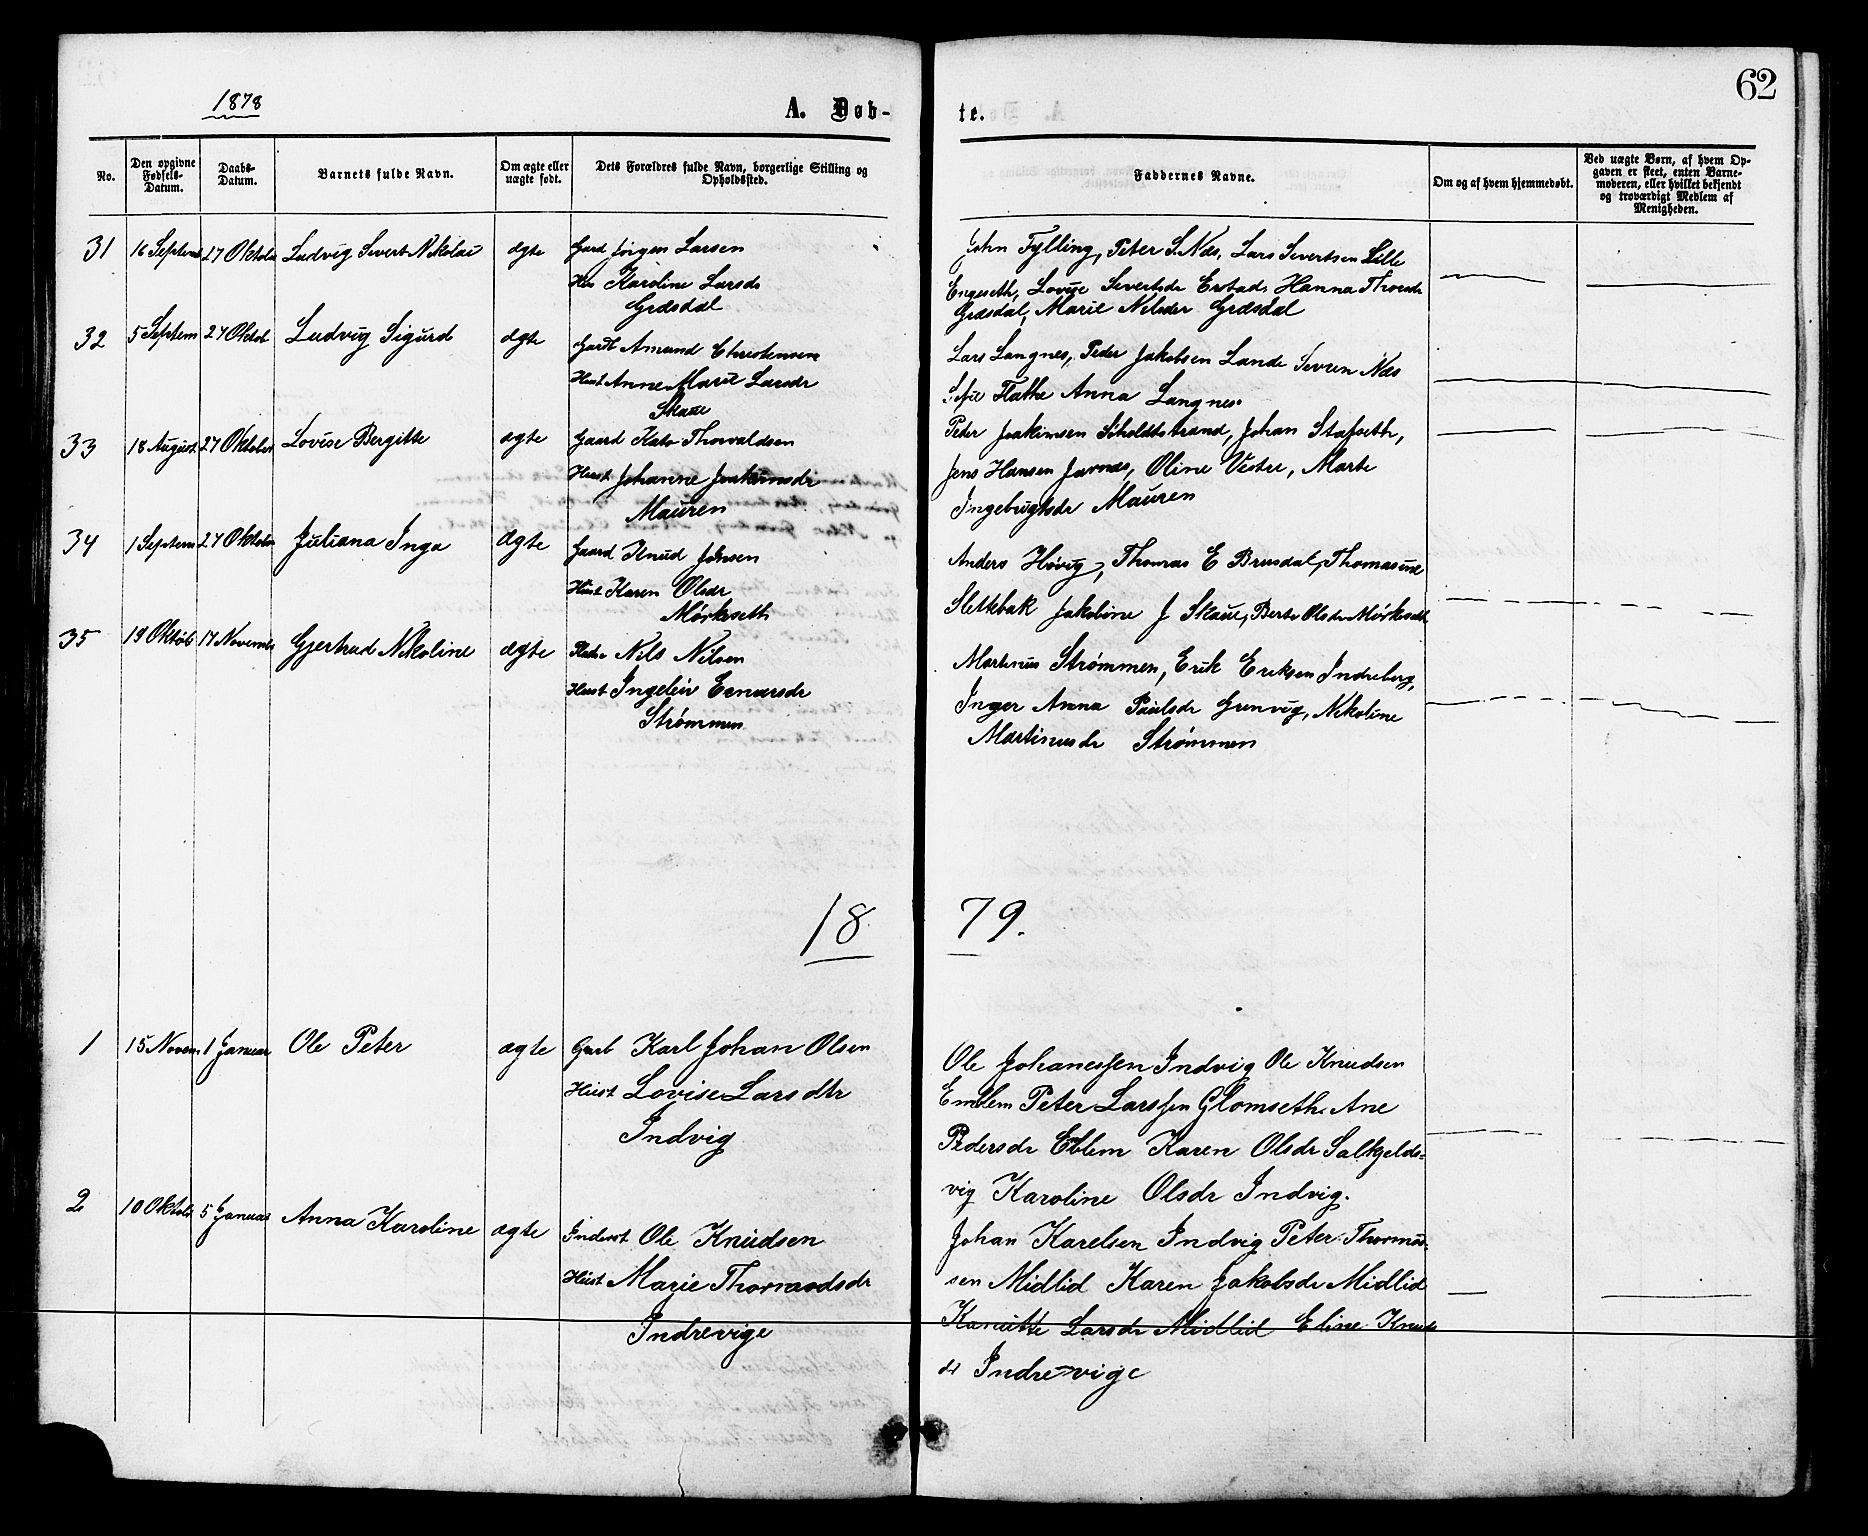 62
1878
A. Døb-
te.
No.
Den opgivne Fødsels-Datum.
Daabs-Datum.
Barnets fulde Navn.
Om ægte eller uægte født.
Dets Forældres fulde Navn, borgerlige Stilling og Opholdssted.
Faddernes Navne.
Om og af hvem hjemmedøbt.
Ved uægte Børn, af hvem Op-
gaven er skeet, enten Barne-
moderen, eller hvilket bekjendt
og troværdigt Medlem af
Menigheden.
31 16 Septemb 27 Oktober Ludvig Sivert Nikolai ægte Gard Jørgen Larsen
Hus Karoline Larsdr
Græsdal
John Fylling, Peter S. Næs, Lars Sivertsen Lille
Engeseth, Lovise Sivertsdr Erstad, Hanna Thoresdr
Græsdal, Marie Nilsdr Græsdal
32 5 Septem 27 Oktob Ludvig Sigurd ægte Gardb Amund Christensen
Hust Anne Marie Larsdr
Skaue
Lars Langnes, Peder Jakobsen Lande Severin Næs
Sofie Flathe Anna Langnes.
33 18 August 27 Oktober Lovise Bergitte ægte Gaard Kato Thorvaldsen
Hust Johanne Joakimsdr
Mauren
Peder Joakimsen Sholdtstrand, Johan Stafseth,
Jens Hansen Jarnæs, Oline Vestre, Marte
Ingebrigtsdr Mauren
34 1 Septem 27 Oktober Juliana Inga Ægte Gaard Knud Johnsen
Hust Karen Olsdr
Mørkeseth
Anders Høvig, Thomas E Brusdal, Thomasine
Slettebak Jakobine J Skaue, Berte Olsdr Mørkseth
35 19 Oktob 17 Novemb Gjertrud Nikoline ægte Pladsm Nils Nilsen
Hust Ingeleiv Einarsdr
Strømmen
Martinus Strømmen, Erik Eriksen Indreberg,
Inger Anna Paulsdr Grenvig, Nikoline
Martinusdr Strømmen
18 79.
1 15 Novem 1 Januar Ole Peter ægte Garb Karl Johan Olsen
Hust Lovise Larsdtr
Indvig
Ole Johanessen Indvig Ole Knudsen
Emblem Peter Larssen Glomseth. Ane
Pedersdr Eblem Karen Olsdr Salkjelds=
vig Karoline Olsdr Indvig.
2 10 Oktob 5 Januar Anna Karoline ægte Inderst Ole Knudsen
Hust Marie Thomasdsdr
Indrevige
Johan Karelsen Indvig Peter Thomas=
sen Midlid Karen Jakobsdr Midlid
Kanutte Larsdr Midlid Eline Knuds
dr Indre-vige